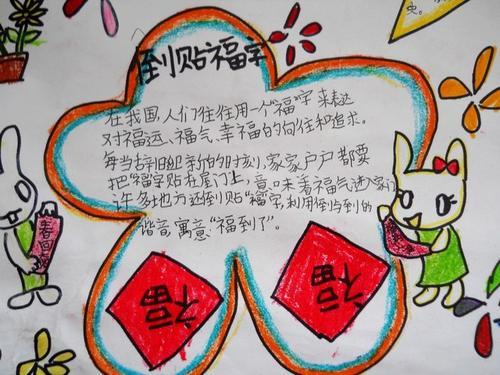 倒贴福字
在我国,人们往往用一个"福"字来表达
对福运、福气、幸福的向往和追求。
每当辞旧迎新的时刻,家家户户都要
把"福"字贴在屋门上,意味着福气进入家门
许多地方还倒贴"福"字,利用倒与到的
谐音,寓意"福到了"。
春回
福
福